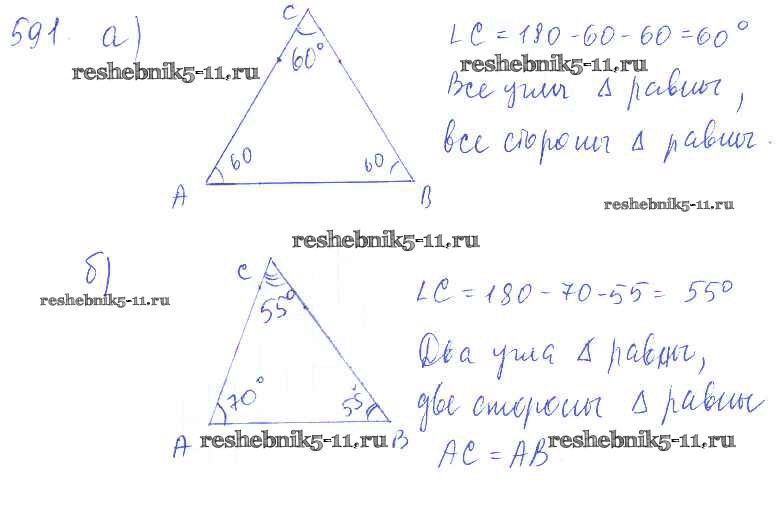 591. а)
C
60°
60
60
A
B
∠C = 180 - 60 - 60 = 60°
Все углы Δ равны,
все стороны Δ равны.
reshebnik5-11.ru
reshebnik5-11.ru
reshebnik5-11.ru
reshebnik5-11.ru
б)
reshebnik5-11.ru
C
55°
70°
55°
A
B
∠C = 180 - 70 - 55 = 55°
Два угла Δ равны,
две стороны Δ равны
AC = AB
reshebnik5-11.ru
reshebnik5-11.ru